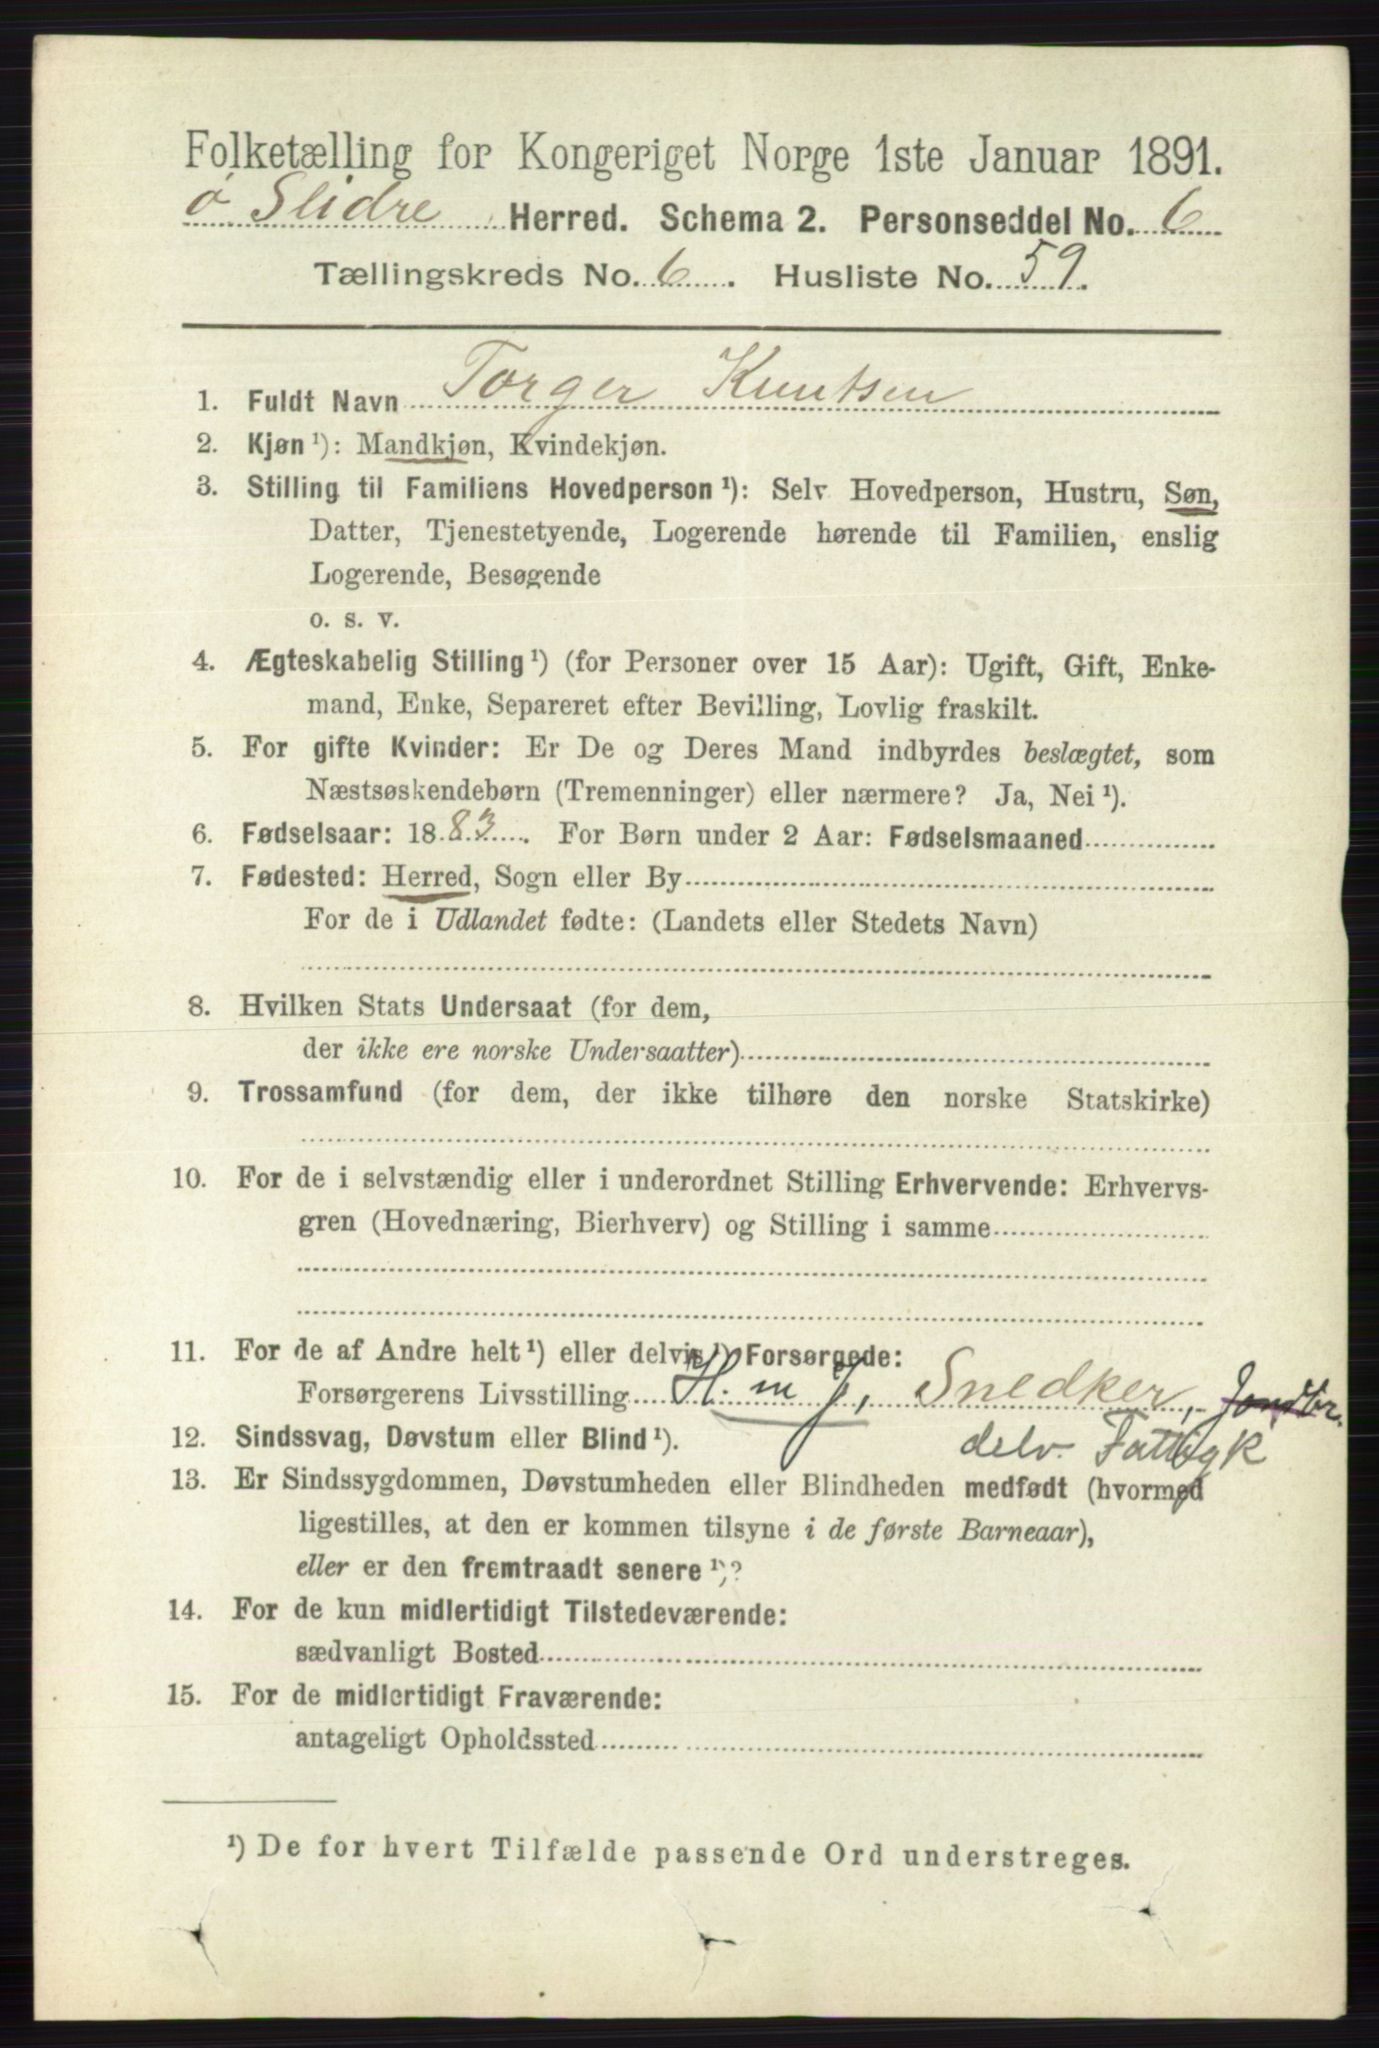 Folketælling for Kongeriget Norge 1ste Januar 1891.
Ø Slidre Herred. Schema 2. Personseddel No. 6
Tællingskreds No. 6. Husliste No. 59.
1. Fuldt Navn Torger Knutsen
2. Kjøn ¹): Mandkjøn, Kvindekjøn.
3. Stilling til Familiens Hovedperson ¹): Selv Hovedperson, Hustru, Søn,
Datter, Tjenestetyende, Logerende hørende til Familien, enslig
Logerende, Besøgende
o. s. v.
4. Ægteskabelig Stilling ¹) (for Personer over 15 Aar): Ugift, Gift, Enke-
mand, Enke, Separeret efter Bevilling, Lovlig fraskilt.
5. For gifte Kvinder: Er De og Deres Mand indbyrdes beslægtet, som
Næstsøskendebørn (Tremenninger) eller nærmere? Ja, Nei ¹).
6. Fødselsaar: 1883. For Børn under 2 Aar: Fødselsmaaned
7. Fødested: Herred, Sogn eller By
For de i Udlandet fødte: (Landets eller Stedets Navn)
8. Hvilken Stats Undersaat (for dem,
der ikke ere norske Undersaatter)
9. Trossamfund (for dem, der ikke tilhøre den norske Statskirke)
10. For de i selvstændig eller i underordnet Stilling Erhvervende: Erhvervs-
gren (Hovednæring, Bierhverv) og Stilling i samme
11. For de af Andre helt ¹) eller delvis ¹) Forsørgede:
Forsørgerens Livsstilling H. m J, Snedker, Jordbr.
12. Sindssvag, Døvstum eller Blind ¹). delv. Fattigk
13. Er Sindssygdommen, Døvstumheden eller Blindheden medfødt (hvormed
ligestilles, at den er kommen tilsyne i de første Barneaar),
eller er den fremtraadt senere ¹)?
14. For de kun midlertidigt Tilstedeværende:
sædvanligt Bosted
15. For de midlertidigt Fraværende:
antageligt Opholdssted
¹) De for hvert Tilfælde passende Ord understreges.